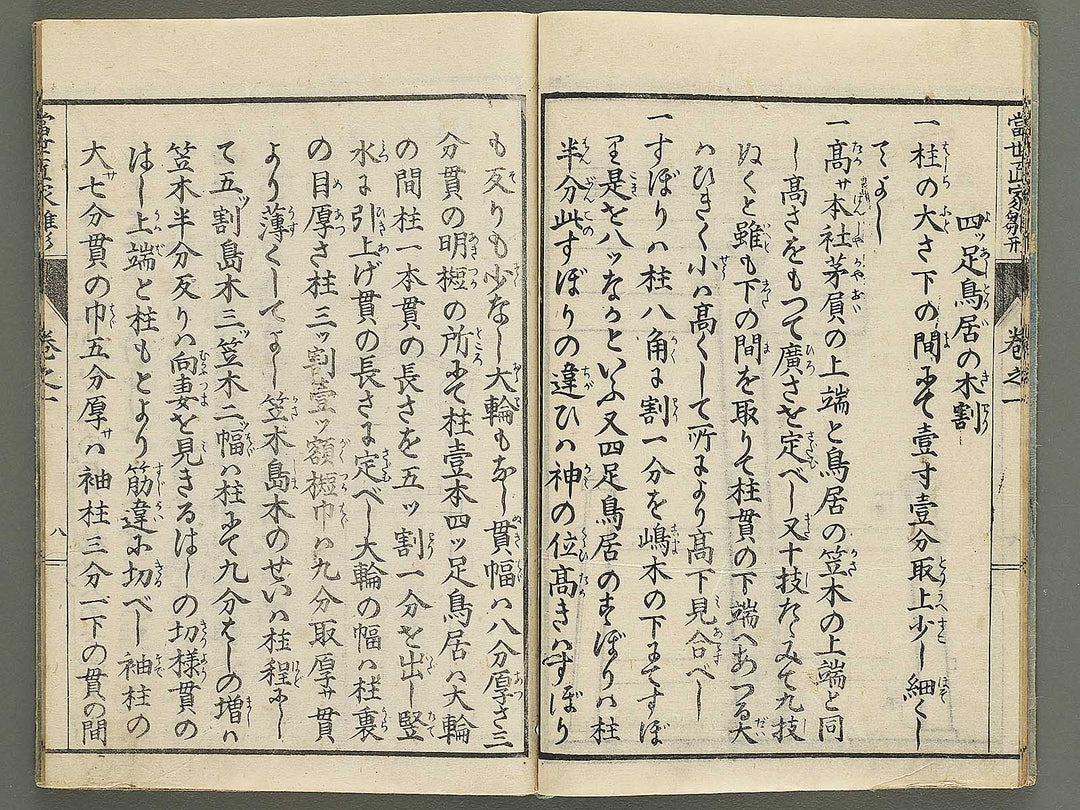 當世匠家雛形
巻之一
四ッ足鳥居の木割
一柱の大さ下の間にて壹寸壹分取上少し細くし
てよし
一高サ本社茅負の上端と鳥居の笠木の上端と同
し高さをもつて廣さを定べし又十枝たゝみて九枝
ぬくと雖も下の間を取りて柱貫の下端へあつる大
ハひきく小ハ高くして所により高下見合べし
一すぼりハ柱八角に割一分を嶋木の下にてすぼ
里是を八ッなかといふ又四足鳥居のすぼりハ柱
半分此すぼりの違ひハ神の位高きハすぼり
も反りも少なし大輪もなし貫幅ハ八分厚さ三
分貫の明椪の所にて柱壹本四ッ足鳥居ハ大輪
の間柱一本貫の長さを五ッ割一分を出し竪
水に引上げ貫の長さに定べし大輪の幅ハ柱裏
の目厚さ柱三ッ割壹ッ額椪巾ハ九分取厚サ貫
より薄くしてよし笠木島木のせいハ柱程にし
て五ッ割島木三ッ笠木二幅ハ柱にて九分はしの増ハ
笠木半分反りハ向妻を見きるはしの切様貫の
はし上端と柱もとより筋違に切べし袖柱の
大サ七分貫の巾五分厚サハ袖柱三分一下の貫の間
巻之一
八